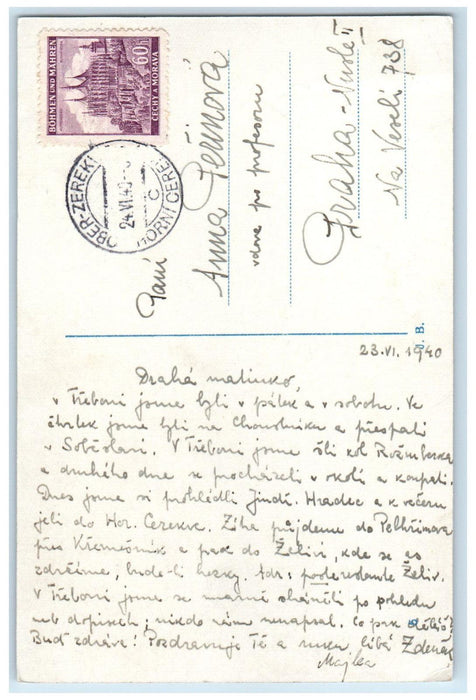 BÖHMEN UND MÄHREN
ČECHY A MORAVA
60h
OBER-ZEREKWE
24.VI.40
C
HORNÍ CEREKEV
Paní
Anna Peřinová
vdova po profesoru
Praha - Nusle II
Na Veselí 738
J. B.
23.VI.1940
Drahá matinko,
v Třeboni jsme byli v pátek a v sobotu. Ve
čtvrtek jsme byli na Choustníku a přespali
v Soběslavi. V Třeboni jsme šli kol Rožmberka
a druhého dne se procházeli v okolí a koupali.
Dnes jsme si prohlédli Jindř. Hradec a k večeru
jeli do Hor. Cerekve. Zítra půjdeme do Pelhřimova
přes Křemešník a pak do Želiví, kde se as
zdržíme, bude-li hezky. Adr: poste restante Želiv.
V Třeboni jsme se marně sháněli po pohledu
neb dopisech, nikdo nám nenapsal. Co pak děláš?
Buď zdráva! Pozdravuje Tě a ruku líbá Zdeněk
Majka